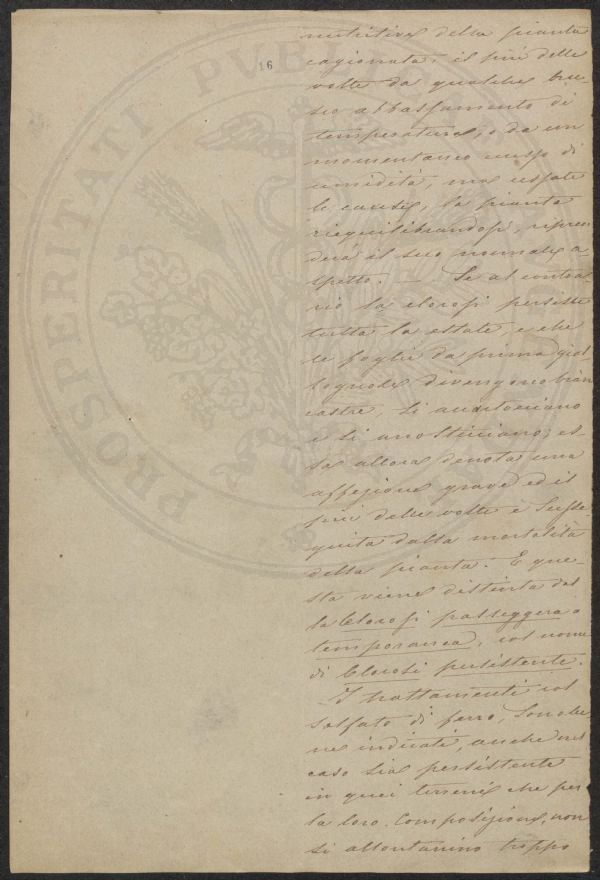 16
nutritive della pianta
cagionata il più delle
volte da qualche bru-
sco abbassamento di
temperatura, o da un
momentaneo
umidità, ma cessate
le cause, la pianta
riequilibrandosi, ripren-
derà il suo normale a-
spetto. — Se al contra-
rio la clorosi persiste
tutta la estate, e che
le foglie da prima gial-
lognole divengono bian
castre, si accartocciano
e si anosticiano, es-
sa allora denota una
affezione grave ed il
più delle volte è susse
guita dalla mortalità
della pianta. E que-
sta viene distinta dal
la Clorosi passeggera o
temporanea, col nome
di Clorosi persistente.
I trattamenti col
solfato di ferro, sono be
ne indicati, anche nel
caso sia persistente
in quei terreni che per
la loro composizione, non
si allontanino troppo
PROSPERITATI PVBLICAE